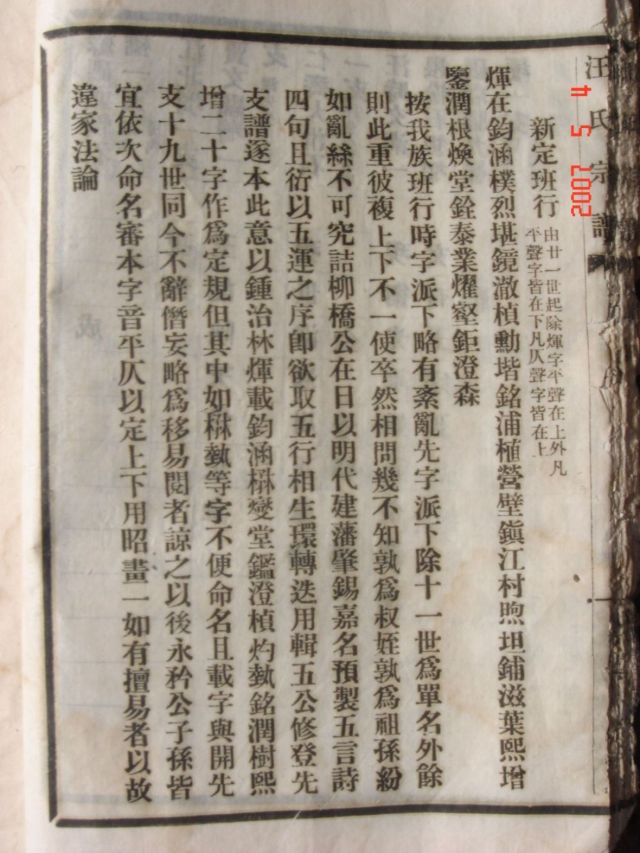 汪氏宗譜
新定班行
由廿一世起除煇字平聲在上外凡
平聲字皆在下凡仄聲字皆在上
煇在鈞涵樸烈堪鏡澈楨勳堦銘浦植營壁鎮江村煦坦鋪滋葉熙增
鑒潤根煥堂銓泰業燿壑鉅澄森
按我族班行時字派下略有紊亂先字派下除十一世爲單名外餘
則此重彼複上下不一使卒然相問幾不知孰爲叔姪孰爲祖孫紛
如亂絲不可究詰柳橋公在日以明代建藩肇錫嘉名預製五言詩
四句且衍以五運之序卽欲取五行相生環轉迭用輯五公修登先
支譜遂本此意以鍾治林煇載鈞涵楙燮堂鑑澄楨灼埶銘潤樹熙
增二十字作爲定規但其中如楙埶等字不便命名且載字與開先
支十九世同今不辭僭妄略爲移易閱者諒之以後永矜公子孫皆
宜依次命名審本字音平仄以定上下用昭畫一如有擅易者以故
違家法論
2007 5 4